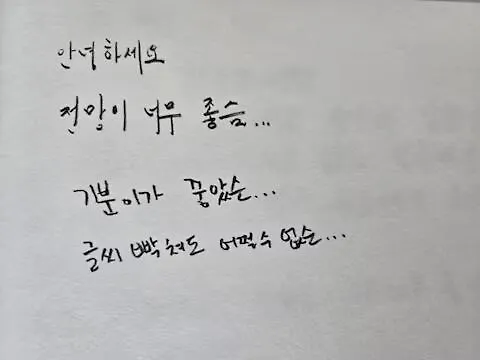 안녕하세요
전망이 너무 좋슴...
기분이가 좋았슨...
글씨 빡쳐도 어쩔수 없슨...